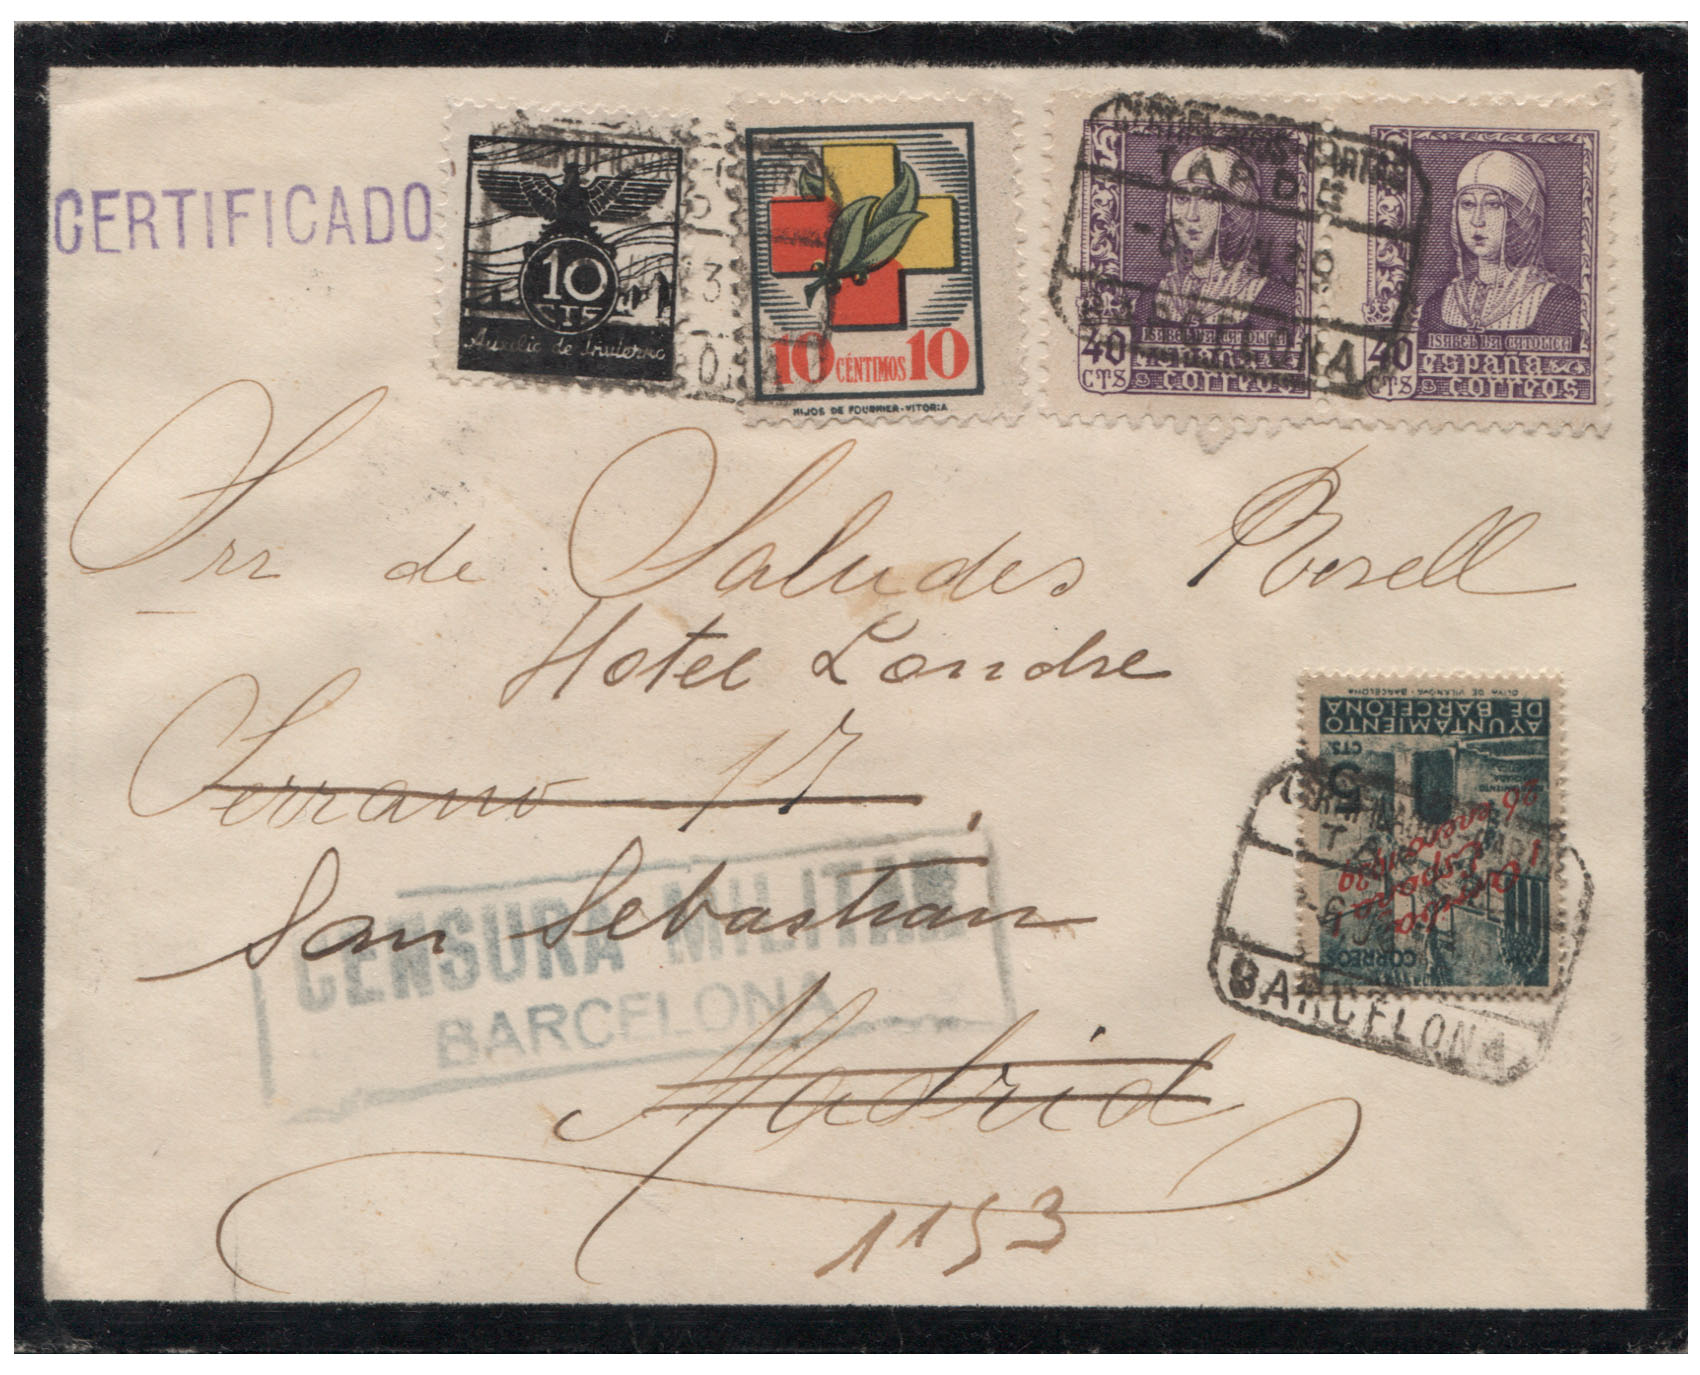 CERTIFICADO
10
CTS
Auxilio de Invierno
10 CÉNTIMOS 10
HIJOS DE FOURNIER-VITORIA
TARDE
40
CTS
ISABEL LA CATOLICA
españa
correos
40
CTS
ISABEL LA CATOLICA
españa
correos
Srr de Saludes Rosell
Hotel Londre
Serrano 17
San Sebastián
CENSURA MILITAR
BARCELONA
Madrid
1153
OLIVA DE VILANOVA-BARCELONA
AYUNTAMIENTO
DE BARCELONA
5
CTS.
26 enero 1939
España
CORREOS
BARCELONA